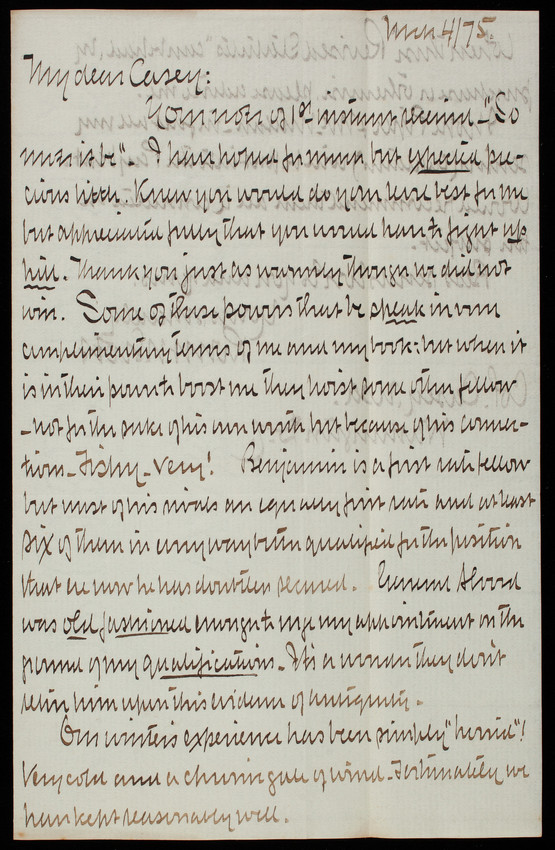 Mch 4/75.
My dear Casey:
Your note of 1st instant received - "So
must it be". I have hoped for much but expected pre-
cious little. Knew you would do your level best for me
but appreciated fully that you would have to fight up
hill. Thank you just as warmly though we did not
win. Some of those powers that be speak in very
complimentary terms of me and my book; but when it
is in their power to boost me they hoist some other fellow
- not for the sake of his own worth but because of his connec-
tions - Fishy - very! Benjamin is a first rate fellow
but most of his rivals are equally first rate and at least
six of them in every way better qualified for the position
that he now has doubtless secured. General
was old fashioned enough to urge my appointment on the
ground of my qualifications. It's a wonder they don't
retire him upon this evidence of antiquity.
Our winter's experience has been simply "horrid"!
Very cold and a chronic gale of wind - Fortunately we
have kept reasonably well.